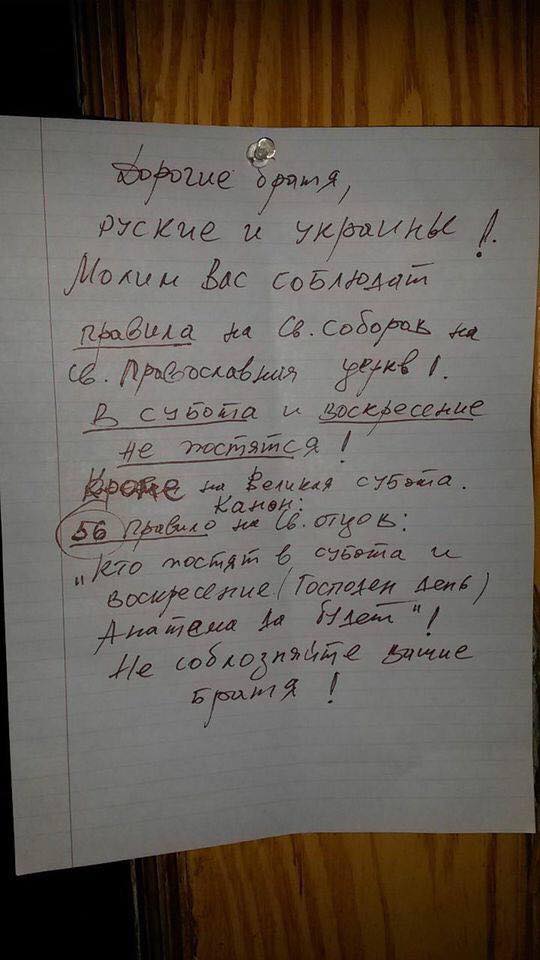 Дорогие братя,
руские и украины!
Молим Вас соблюдат
правила на Св. соборов на
св. Православния церкв!
В субота и воскресение
не постятся!
Кроме на Великая субота.
Канон:
56 правило на Св. отцов:
"Кто постят в субота и
воскресение (Господен день)
Анатема да будет"!
Не соблозняйте вашие
братя!